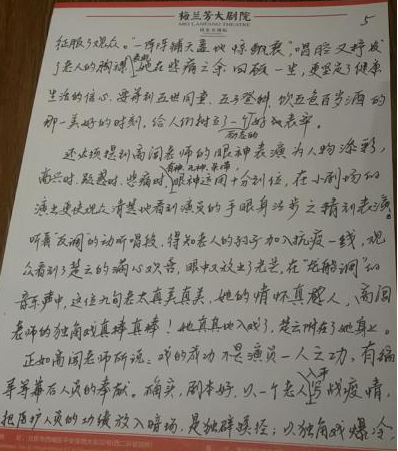 梅兰芳大剧院
MEI LANFANG THEATRE
5
征服了观众。"一阵阵铺天盖地惊飘寰"唱腔又抒发
了老人的胸襟 她在悲痛之余回顾一生,更坚定了健康
生活的信心 要等到五世同堂、五子登科、饮五色百岁酒的
那一美好的时刻,给人们树立了一个好的表率。
励志的
还必须提到高闰老师的眼神表演为人物添彩,
高兴时、欣慰时、悲痛时,眼神运用十分到位,在小剧场的
演出更使观众清楚地看到演员的手眼身法步之精彩表演。
听着"反调"的动听唱段,得知老人的孙子加入抗疫一线,观
众看到了楚云的满心欢喜,眼中又放出了光芒,在"龙船调"的
音乐声中,这位九旬老太真美真美,她的情怀真感人,高闰
老师的独角戏真棒真棒!她真真地入戏了,楚云附在了她身上。
正如高闰老师所说:戏的成功不是演员一人之功,有编
导等幕后人员的奉献。确实,剧本好,以一个老人 写战疫情,
入手
把医护人员的功绩放入暗场,是独辟蹊径;以独角戏爆冷,